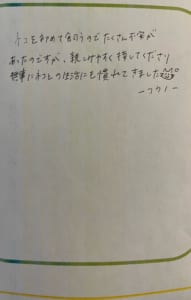 ネコを初めて飼うのでたくさん不安が
あったのですが、親しみやすく接してくださり
無事にネコとの生活にも慣れてきました